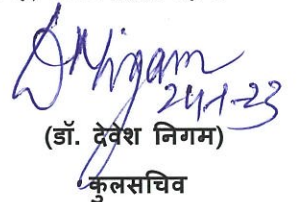 DNigam
24-1-23
(डॉ. देवेश निगम)
कुलसचिव